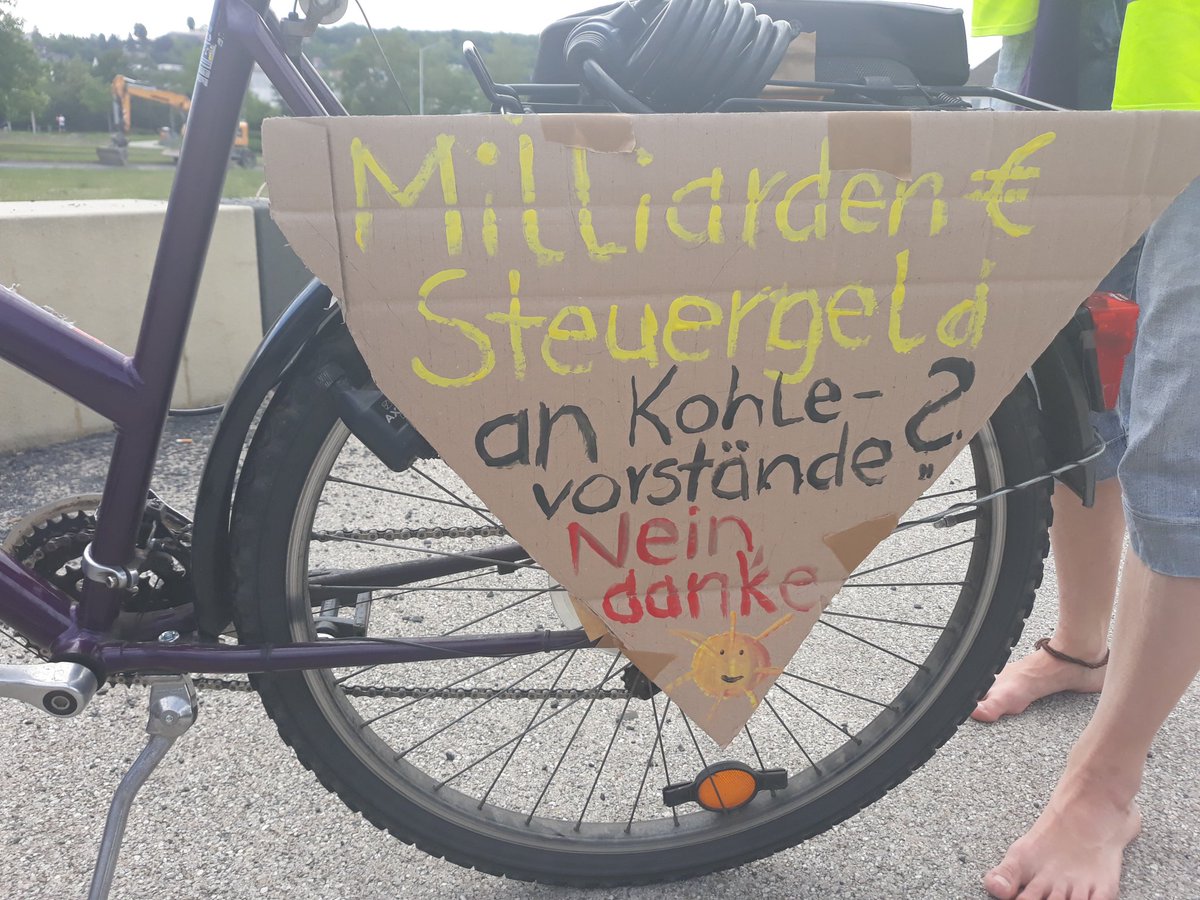 Milliarden €
Steuergeld
an Kohle-
vorstände?
Nein,
danke